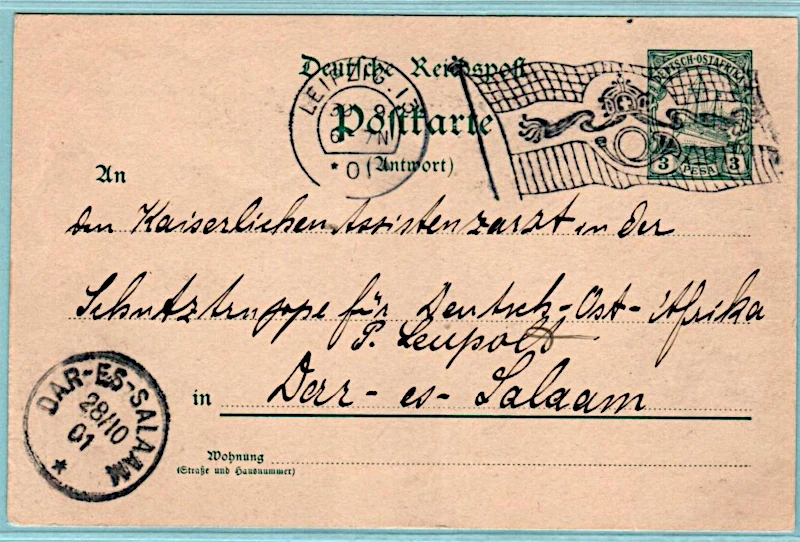 Deutsche Reichspost
LEIPZIG. 1
8
6 N
* 01
DEUTSCH-OSTAFRIKA
3 PESA 3
Postkarte
(Antwort)
An
den Kaiserlichen Assistenzarzt in der
Schutztruppe für Deutsch-Ost-Afrika
P. Leupold
in Darr-es-Salaam
DAR-ES-SALAAM
28/10
01
*
Wohnung
(Straße und Hausnummer)